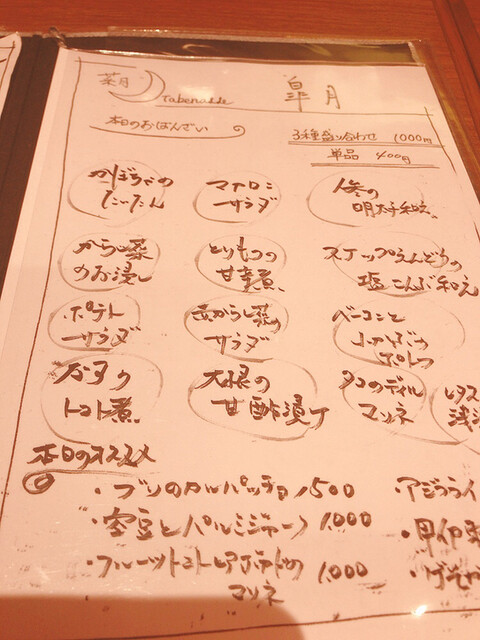 菜月
Tabenakke
皐月
本日のおばんざい
3種盛り合わせ 1000円
単品 400円
かぼちゃの
たいたん
マカロニ
サラダ
人参の
明太子和え
からし菜
のお浸し
とりもつの
甘辛煮
スナップえんどうの
塩こんぶ和え
ポテト
サラダ
赤からし菜の
サラダ
ベーコンと
かぶの
なすの
トマト煮
大根の
甘酢漬け
タコのディル
マリネ
レタス
浅漬
本日のオススメ
・ブリのカルパッチョ 1500
・アジフライ
・空豆とパルミジャーノ 1,000
・甲伊
・フルーツトマトとアボカドの
マリネ 1,000
・げそ